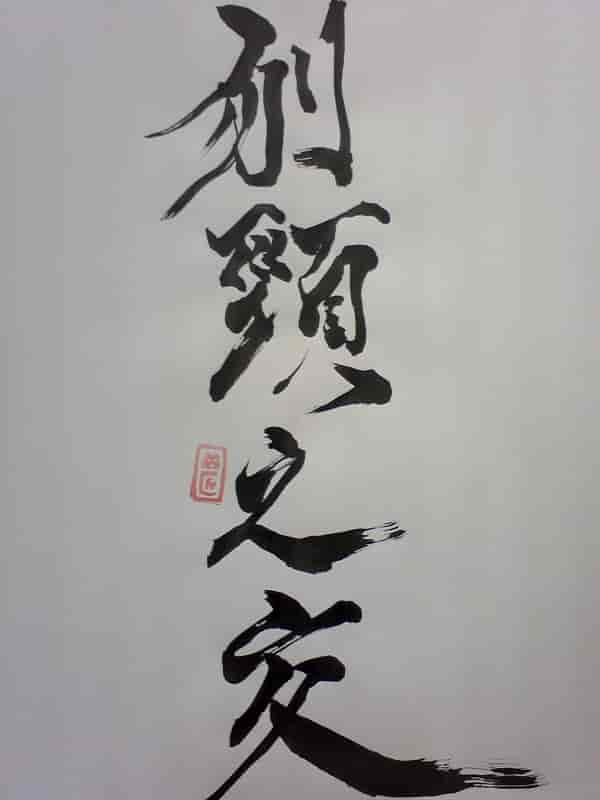 刎頸之交